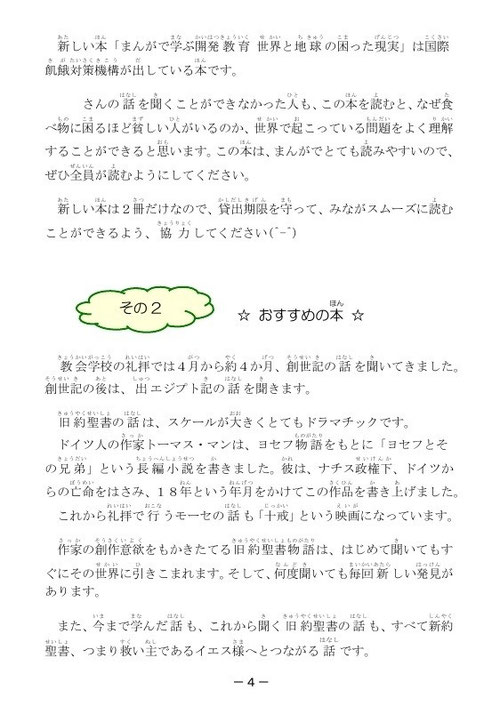 新しい本「まんがで学ぶ開発教育 世界と地球の困った現実」は国際
飢餓対策機構が出している本です。
さんの話を聞くことができなかった人も、この本を読むと、なぜ食
べ物に困るほど貧しい人がいるのか、世界で起こっている問題をよく理解
することができると思います。この本は、まんがでとても読みやすいので、
ぜひ全員が読むようにしてください。
新しい本は２冊だけなので、貸出期限を守って、みながスムーズに読む
ことができるよう、協力してください(^-^)
その２
☆ おすすめの本 ☆
教会学校の礼拝では４月から約４か月、創世記の話を聞いてきました。
創世記の後は、出エジプト記の話を聞きます。
旧約聖書の話は、スケールが大きくとてもドラマチックです。
ドイツ人の作家トーマス・マンは、ヨセフ物語をもとに「ヨセフとそ
の兄弟」という長編小説を書きました。彼は、ナチス政権下、ドイツか
らの亡命をはさみ、１８年という年月をかけてこの作品を書き上げました。
これから礼拝で行うモーセの話も「十戒」という映画になっています。
作家の創作意欲をもかきたてる旧約聖書物語は、はじめて聞いてもす
ぐにその世界に引きこまれます。そして、何度聞いても毎回新しい発見が
あります。
また、今まで学んだ話も、これから聞く旧約聖書の話も、すべて新約
聖書、つまり救い主であるイエス様へとつながる話です。
－４－